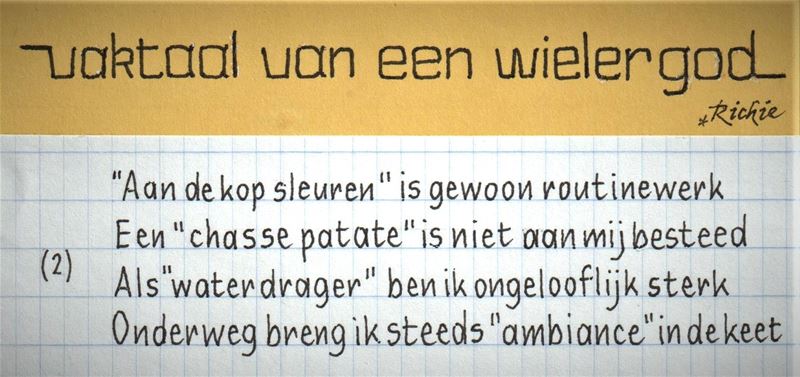 vaktaal van een wielergod
*Richie
"Aan de kop sleuren" is gewoon routinewerk
Een "chasse patate" is niet aan mij besteed
(2)
Als "waterdrager" ben ik ongelooflijk sterk
Onderweg breng ik steeds "ambiance" in de keet